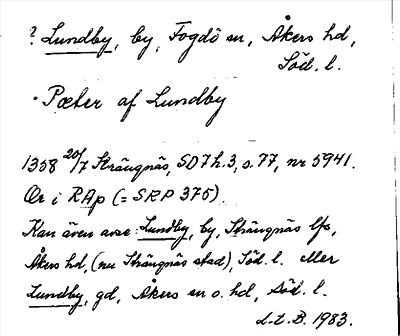 ? Lundby, by, Fogdö sn, Åkers hd,
Söd. l.
· Pæter af Lundby
1358 20/7 Strängnäs, SD 7 h. 3, s. 77, nr 5941.
Or i RAp (= SRP 375).
Kan även avse: Lundby, by, Strängnäs lfs,
Åkers hd, (nu Strängnäs stad), Söd. l. eller
Lundby, gd, Åkers sn o. hd, Söd. l.
L.t.B. 1983.